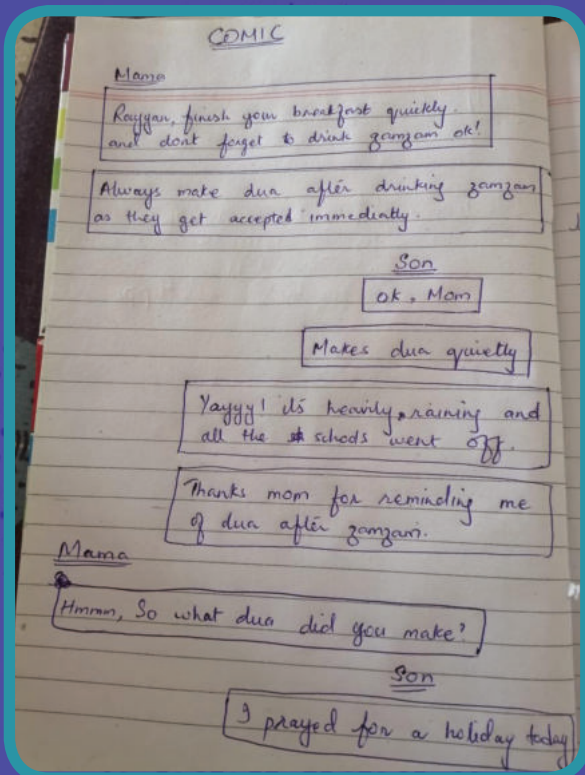 COMIC
Mama
Rayyan, finish your breakfast quickly.
and dont forget to drink zamzam ok!
Always make dua after drinking zamzam
as they get accepted immediatly.
Son
ok, Mom
Makes dua quietly
Yayyy! its heavily raining and
all the schools went off.
Thanks mom for reminding me
of dua after zamzam.
Mama
Hmmm, So what dua did you make?
Son
I prayed for a holiday today